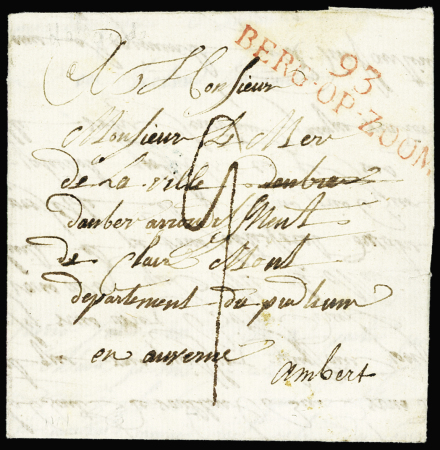 93
BERG-OP-ZOOM
A Monsieur
Monsieur Le Mer
de La ville
danber arrondisMent
de Clair Mont
departement du puidhum
en auverne
ambert